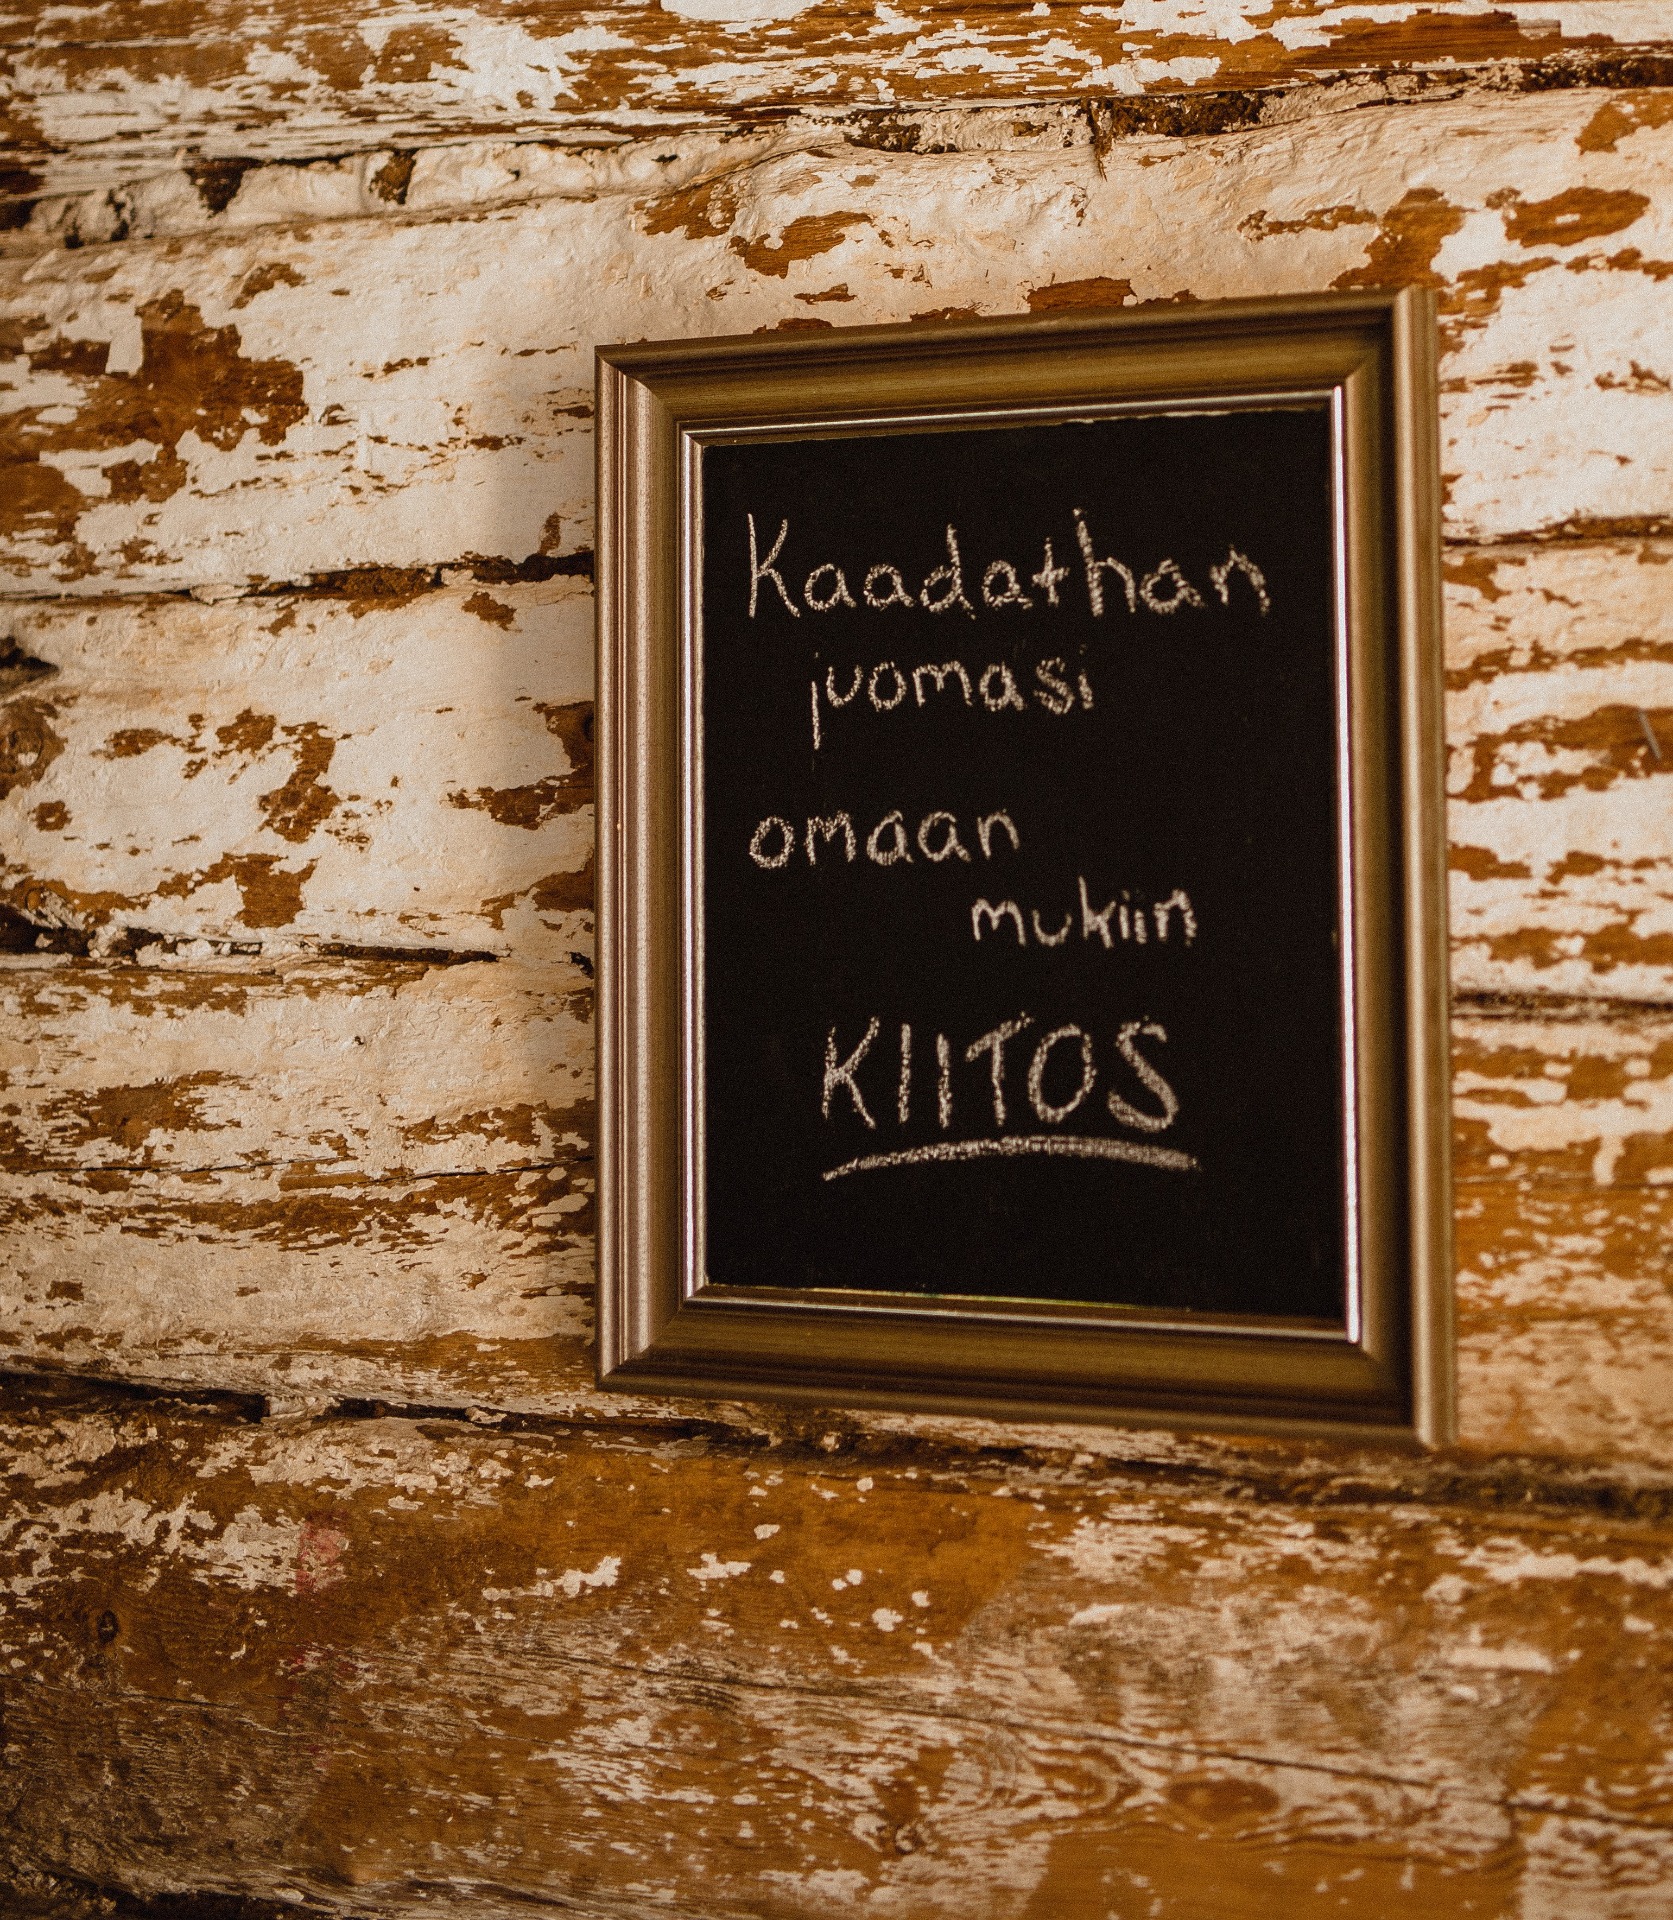 Kaadathan
juomasi
omaan
mukiin
KIITOS